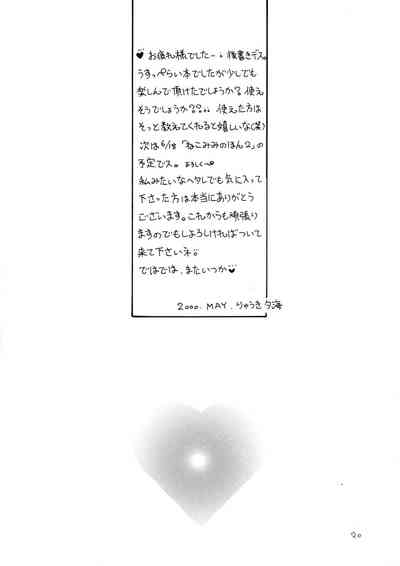 ♥ お疲れ様でしたー。後書きデス。
うすっぺらい本でしたが少しでも
楽しんで頂けたでしょうか？使え
そうでしょうか??。。使えた方は
そっと教えてくれると嬉しいな(笑)
次は6/18「ねこみみのほん2」の
予定でス。よろしくー
私みたいなヘタレでも気に入って
下さった方は本当にありがとう
ございます。これからも頑張り
ますのでもしよろしければついて
来て下さいネ。
ではでは、またいつか♥
2000. MAY. りゅうき夕海
20